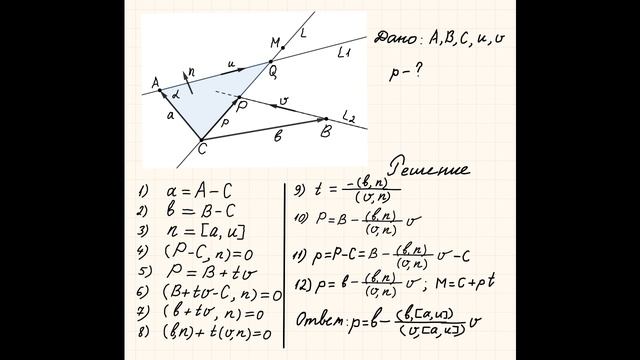 M
L
L1
Q
u
n
A
α
a
P
p
C
v
B
L2
в
Дано: A, B, C, u, v
p - ?
Решение
1) a = A - C
2) в = B - C
3) n = [a, u]
4) (P - C, n) = 0
5) P = B + tv
6) (B + tv - C, n) = 0
7) (в + tv, n) = 0
8) (в, n) + t(v, n) = 0
9) t = -(в, n) / (v, n)
10) P = B - (в, n) / (v, n) v
11) p = P - C = B - (в, n) / (v, n) v - C
12) p = в - (в, n) / (v, n) v ; M = C + pt
Ответ: p = в - (в, [a, u]) / (v, [a, u]) v